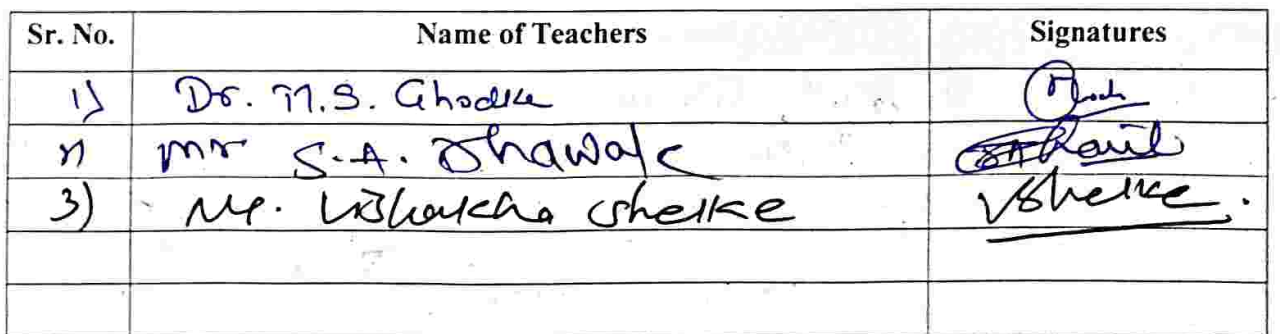 Sr. No. Name of Teachers Signatures
1) Dr. M.S. Ghodke
2) Mr S.A. Dhawale
3) Ms. Vishakha Shelke VShelke.